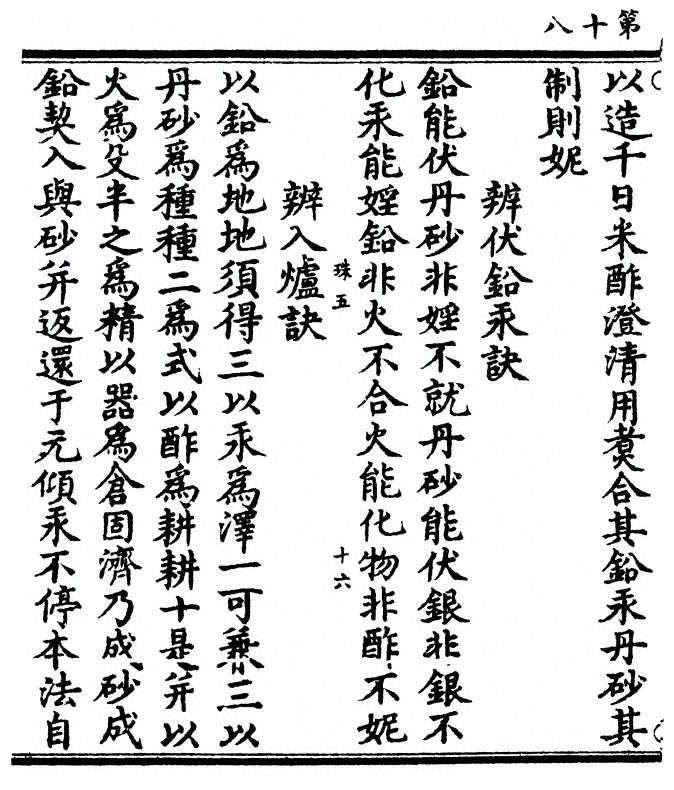 第十八
以造千日米酢澄清用煑合其鉛汞丹砂其
制則妮
辨伏鉛汞訣
鉛能伏丹砂非婬不就丹砂能伏銀非銀不
化汞能婬鉛非火不合火能化物非酢不妮
珠五
十六
辨入爐訣
以鉛為地地須得三以汞為澤一可兼三以
丹砂為種種二為式以酢為耕耕十是并以
火為殳半之為精以器為倉固濟乃成砂成
鉛契入與砂并返還于元傾汞不停本法自